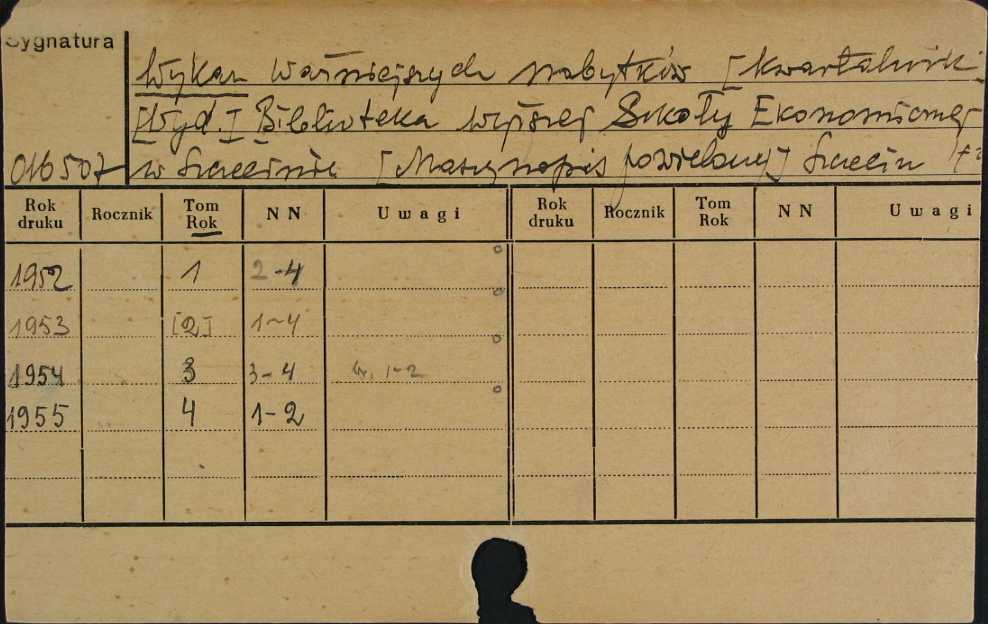 Sygnatura
Wykaz ważniejszych nabytków [kwartalnik]
[Wyd.] Biblioteka Wyższej Szkoły Ekonomicznej
016507 w Szczecinie [Maszynopis powielony] Szczecin
Rok druku Rocznik Tom Rok NN Uwagi Rok druku Rocznik Tom Rok NN Uwagi
1952 1 2-4
1953 [2] 1-4
1954 3 3-4 1-2
1955 4 1-2